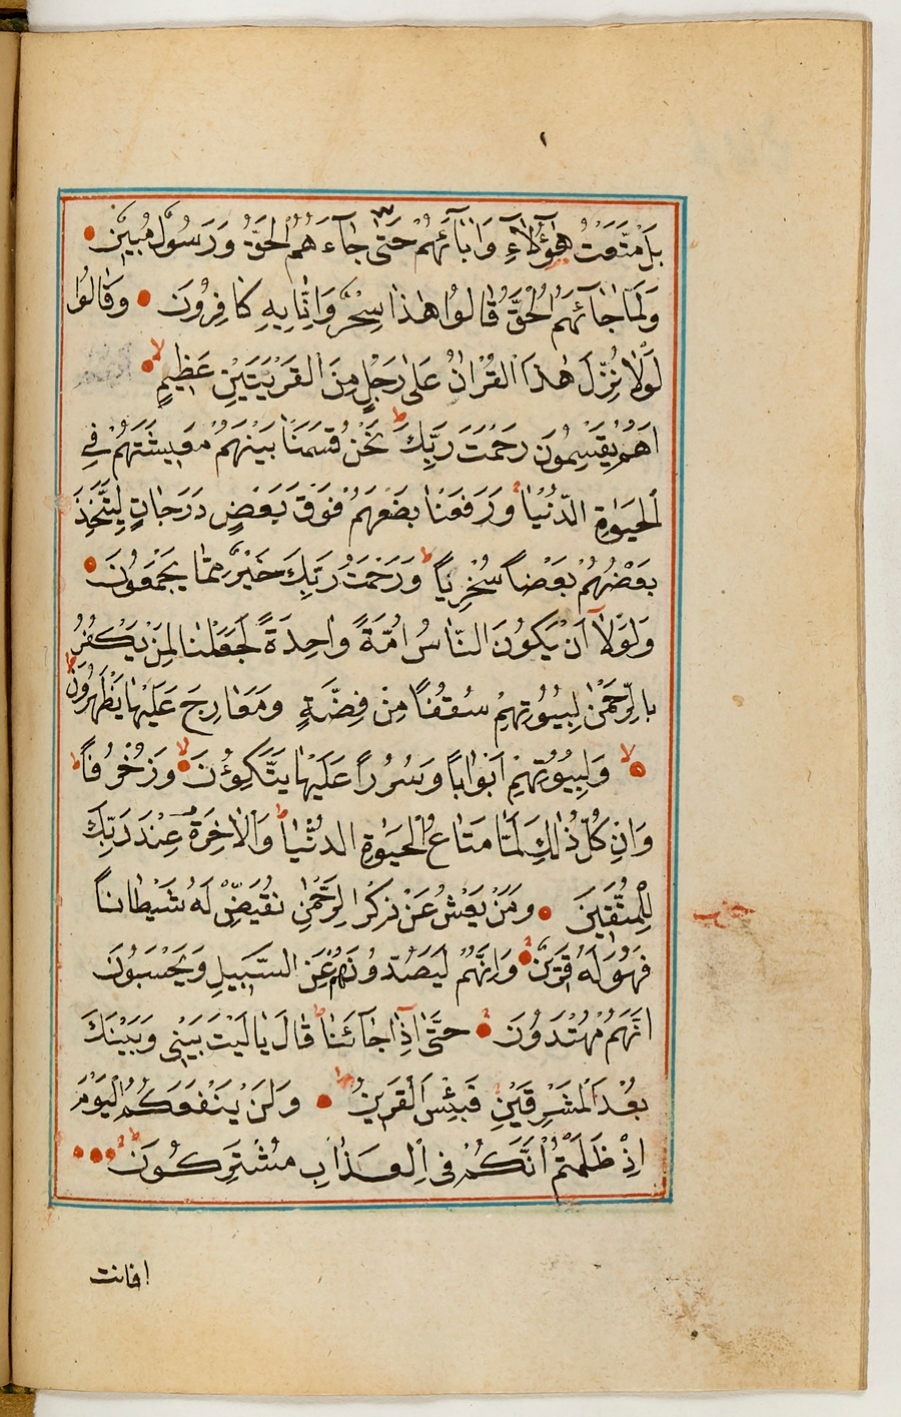 ١
بَلْ مَتَّعْتُ هٰٓؤُلَآءِ وَاٰبَآئَهُمْ حَتّٰى جَآءَ هُمُ الْحَقُّ وَرَسُولٌ مُبِينٌ
وَلَمَّا جَآئَهُمُ الْحَقُّ قَالُوا هٰذَا سِحْرٌ وَاِنَّا بِهِ كَافِرُونَ وَقَالُوا
لَوْلَا نُزِّلَ هٰذَا الْقُرْاٰنُ عَلٰى رَجُلٍ مِنَ الْقَرْيَتَيْنِ عَظِيمٍ
اَهُمْ يَقْسِمُونَ رَحْمَتَ رَبِّكَ نَحْنُ قَسَمْنَا بَيْنَهُمْ مَعِيشَتَهُمْ فِي
الْحَيٰوةِ الدُّنْيَا وَرَفَعْنَا بَعْضَهُمْ فَوْقَ بَعْضٍ دَرَجَاتٍ لِيَتَّخِذَ
بَعْضُهُمْ بَعْضاً سُخْرِيّاً وَرَحْمَتُ رَبِّكَ خَيْرٌ مِمَّا يَجْمَعُونَ
وَلَوْلَآ اَنْ يَكُونَ النَّاسُ اُمَّةً وَاحِدَةً لَجَعَلْنَا لِمَنْ يَكْفُرُ
بِالرَّحْمٰنِ لِبُيُوتِهِمْ سُقُفًا مِنْ فِضَّةٍ وَمَعَارِجَ عَلَيْهَا يَظْهَرُونَ
وَلِبُيُوتِهِمْ اَبْوَاباً وَسُرُراً عَلَيْهَا يَتَّكِؤُنَ وَزُخْرُفاً
وَاِنْ كُلُّ ذٰلِكَ لَمَّا مَتَاعُ الْحَيٰوةِ الدُّنْيَا وَالْاٰخِرَةُ عِنْدَ رَبِّكَ
لِلْمُتَّقِينَ وَمَنْ يَعْشُ عَنْ ذِكْرِ الرَّحْمٰنِ نُقَيِّضْ لَهُ شَيْطَاناً
حزب
فَهُوَ لَهُ قَرِينٌ وَاِنَّهُمْ لَيَصُدُّونَهُمْ عَنِ السَّبِيلِ وَيَحْسَبُونَ
اَنَّهُمْ مُهْتَدُونَ حَتّٰىٓ اِذَا جَآئَنَا قَالَ يَا لَيْتَ بَيْنِي وَبَيْنَكَ
بُعْدَ الْمَشْرِقَيْنِ فَبِئْسَ الْقَرِينُ وَلَنْ يَنْفَعَكُمُ الْيَوْمَ
اِذْ ظَلَمْتُمْ اَنَّكُمْ فِي الْعَذَابِ مُشْتَرِكُونَ
افانت